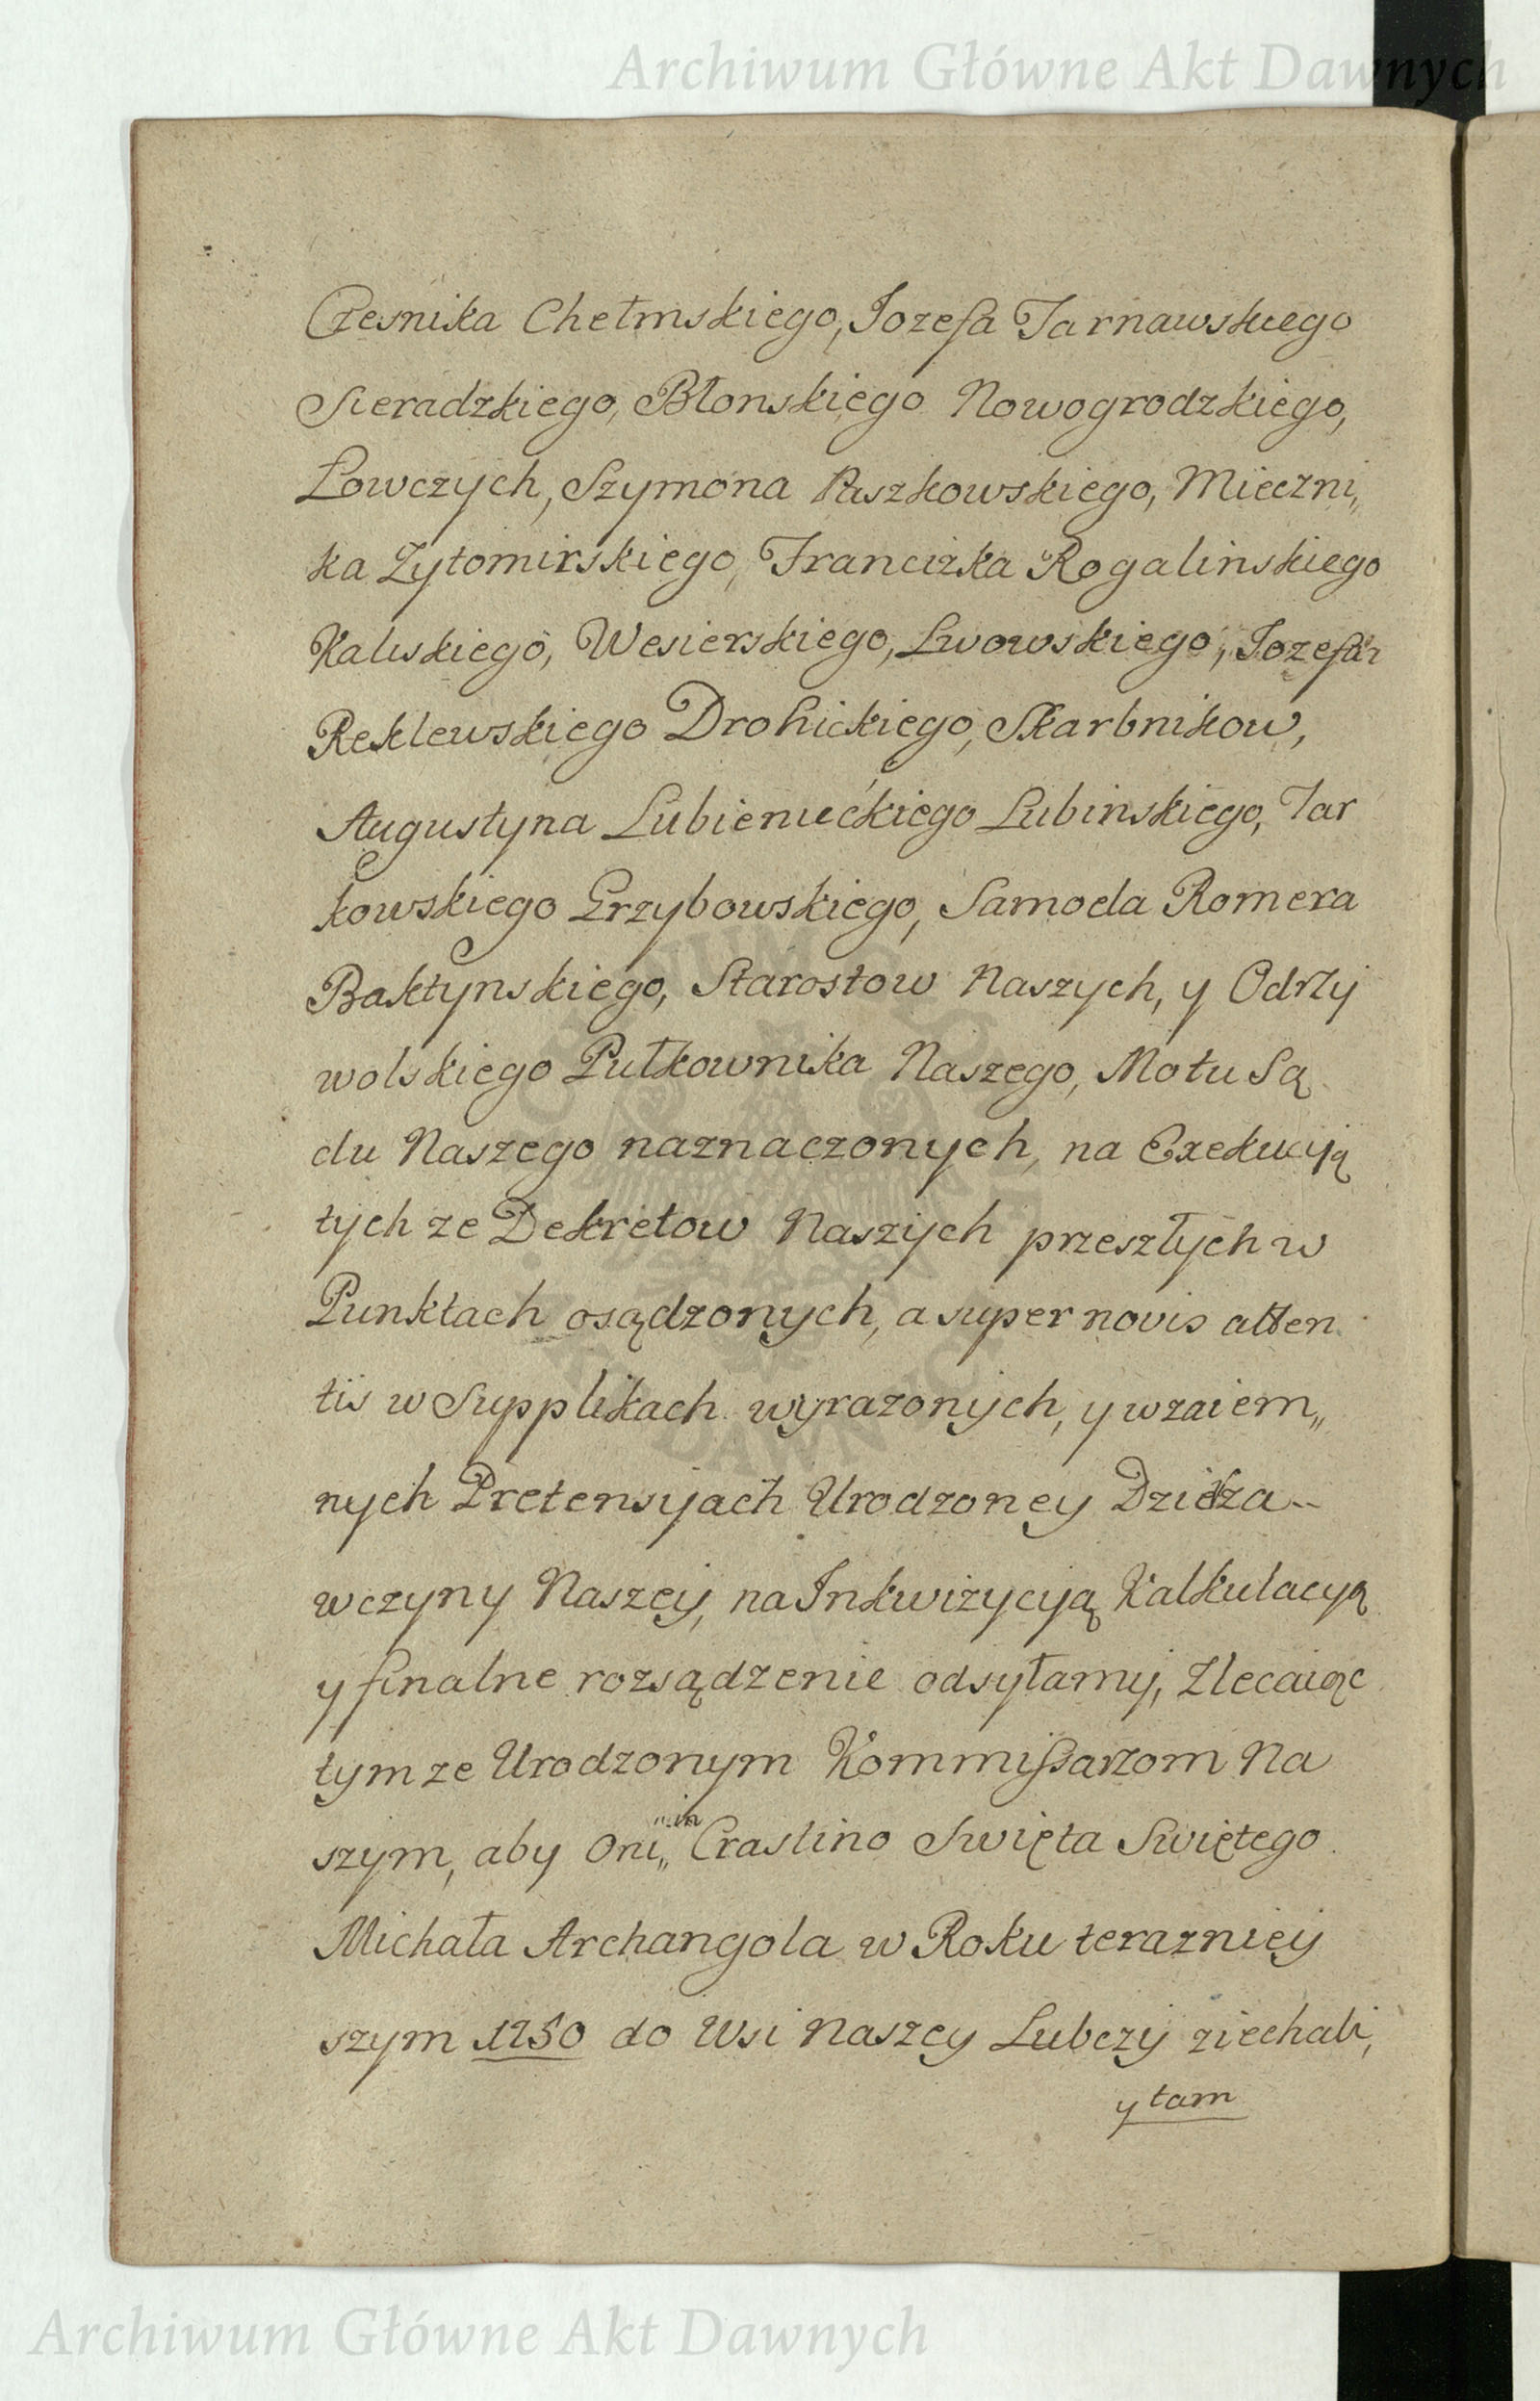 Archiwum Główne Akt Dawnych
Czesnika Chełmskiego, Jozefa Tarnawskiego
Sieradzkiego, Błonskiego Nowogrodzkiego,
Łowczych, Szymona Paszkowskiego, Mieczni„
ka Zytomirskiego, Franciszka Rogalinskiego
Kaliskiego, Wesierskiego, Lwowskiego, Jozefa
Reklewskiego Drohickiego, Skarbnikow,
Augustyna Lubienieckiego Lubinskiego, Tar
kowskiego Grzybowskiego, Romera
Baktynskiego, Starostow Naszych, y Odrzy
wolskiego Pułkownika Naszego, Motu Są
du Naszego naznaczonych, na Exekucyją
tych ze Dekretow Naszych przeszłych w
Punktach osądzonych, a super novis atten
tis w Supplikach wyrazonych, y wzaiem„
nych Pretensyjach Urodzoney Dzierza--
wczyny Naszey, na Inkwizycyją Kalkulacyą
y finalne rozsądzenie odsyłamy, Zlecaiąc
tym ze Urodzonym Kommissarzom Na
szym, aby Oni„ „in Crastino Swięta Swiętego
Michała Archangola w Roku terazniey
szym 1750 do Wsi Naszey Lubczy ziechali,
y tam
Archiwum Główne Akt Dawnych